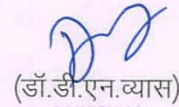 (डॉ.डी.एन.व्यास)